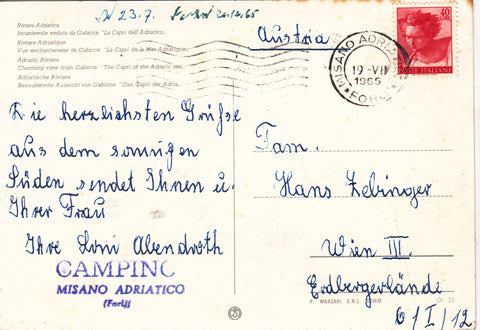 a 23.7.
20.12.65
Riviera Adriatica
Incantevole veduta da Gabicce "La Capri dell'Adriatico.
Riviera Adriatique
Vue enchanteresse de Gabicce "La Capri de la Mer Adriatique.
Adriatic Riviera
Charming view from Gabicce "The Capri of the Adriatic sea.
Adriatische Riviera
Bezaubernde Aussicht von Gabicce "Das Capri der Adria.
Austria
MISANO ADRIATICO
19-VII
1965
*FORLI*
40
POSTE ITALIANE
Die herzlichsten Grüße
aus dem sonnigen
Süden sendet Ihnen u.
Ihrer Frau
Ihre Loni Abendroth
CAMPING
MISANO ADRIATICO
(Forlì)
Fam.
Hans Zebinger
Wien III.
Erdbergerlände
6/I/12
P. MARZARI S.R.L. SCHIO
101-32